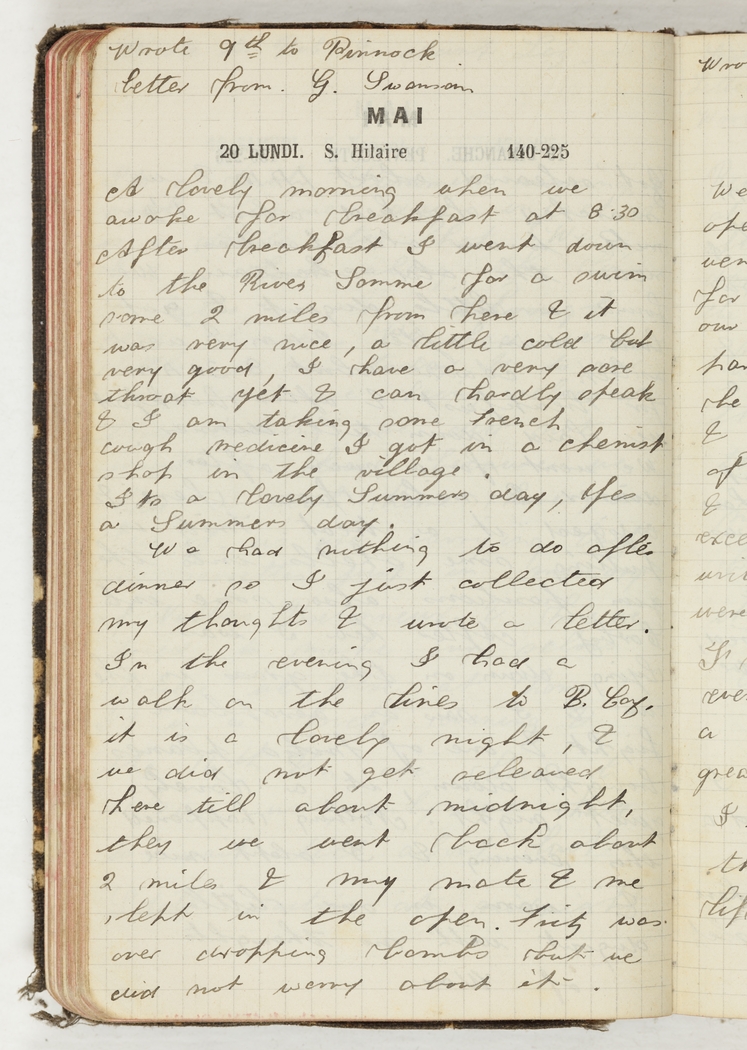 Wrote 9th to Pinnock
letter from. G. Swanson
MAI
20 LUNDI. S. Hilaire 140-225
A lovely morning when we
awoke for breakfast at 8.30
After breakfast I went down
to the River Somme for a swim
some 2 miles from here & it
was very nice, a little cold but
very good, I have a very sore
throat yet & can hardly speak
& I am taking some French
cough medicine I got in a chemist
shop in the village.
Its a lovely Summers day, Yes
a Summers day.
We had nothing to do after
dinner so I just collected
my thoughts & wrote a letter.
In the evening I had a
walk on the lines to B. Coy.
it is a lovely night, &
we did not get released
here till about midnight,
they we went back about
2 miles & my mate & me
slept in the open. Fritz was
over dropping bombs but we
did not worry about it.
Wro
We
ope
wen
for
our
har
he
&
of
&
exce
wri
were
eve
a
grea
I